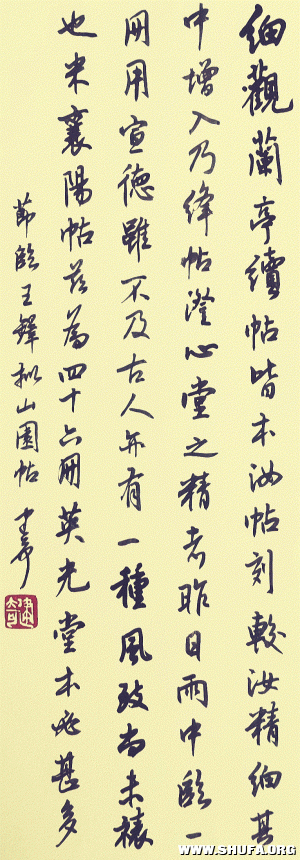 細觀蘭亭續帖皆本汝帖刻較汝精細其
中增入乃絳帖澄心堂之精者昨日雨中臨一
冊用宣德雖不及古人亦有一種風致尚未裱
也米襄陽帖茲為四十六冊英光堂本必甚多
節臨王鐸擬山園帖
WWW.SHUFA.ORG